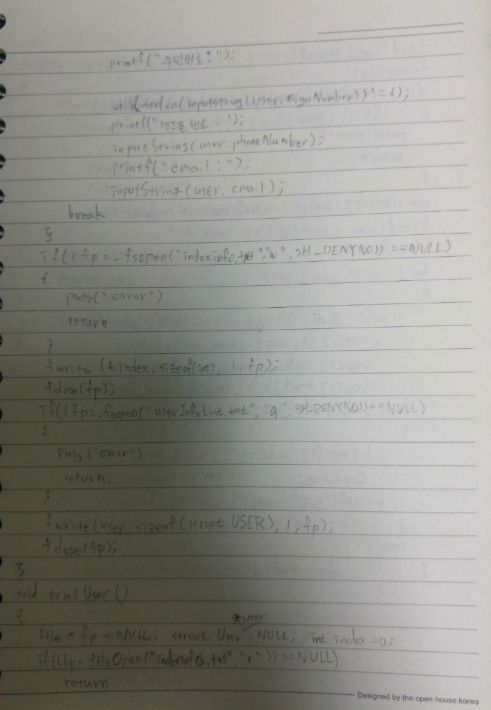 printf("주민번호 : ");
while(strlen(inputString(user.signNumber))!=6);
printf("핸드폰 번호 : ");
inputString(user.phoneNumber);
printf("email : ");
inputString(user.email);
break
}
if((fp=_fsopen("indexinfo.txt", SH_DENYNO))==NULL)
{
puts("error");
return
}
fwrite(&index, sizeof(int), 1, fp);
fclose(fp);
if((fp=_fsopen("userInfoList.txt", "a", SH_DENYNO))==NULL)
{
puts("error")
return;
}
fwrite(user, sizeof(struct USER), 1, fp);
fclose(fp);
}
void printUser()
{
*user
File * fp = NULL; struct User = NULL; int index =0;
if((fp=fileOpen("indexinfo.txt", "r"))==NULL)
return
Designed by the open house korea